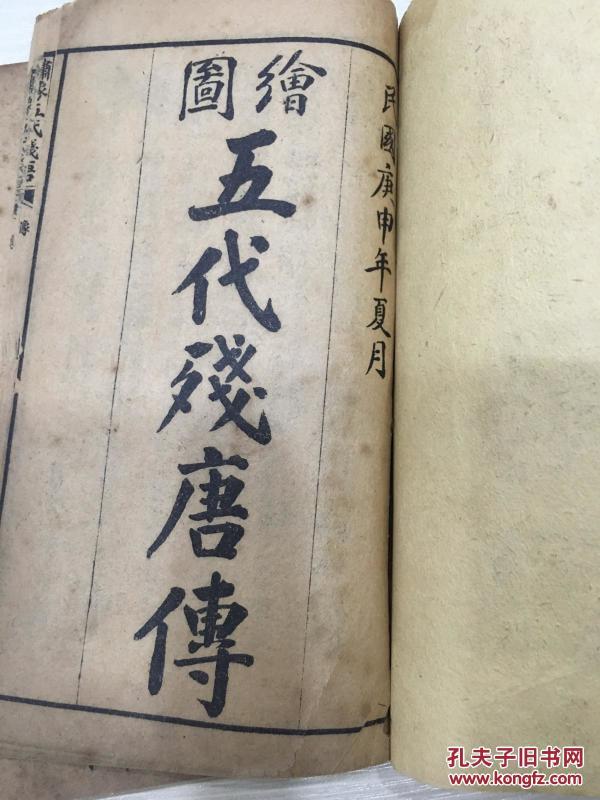 民國庚申年夏月
繪圖
五代殘唐傳
孔夫子旧书网
www.kongfz.com